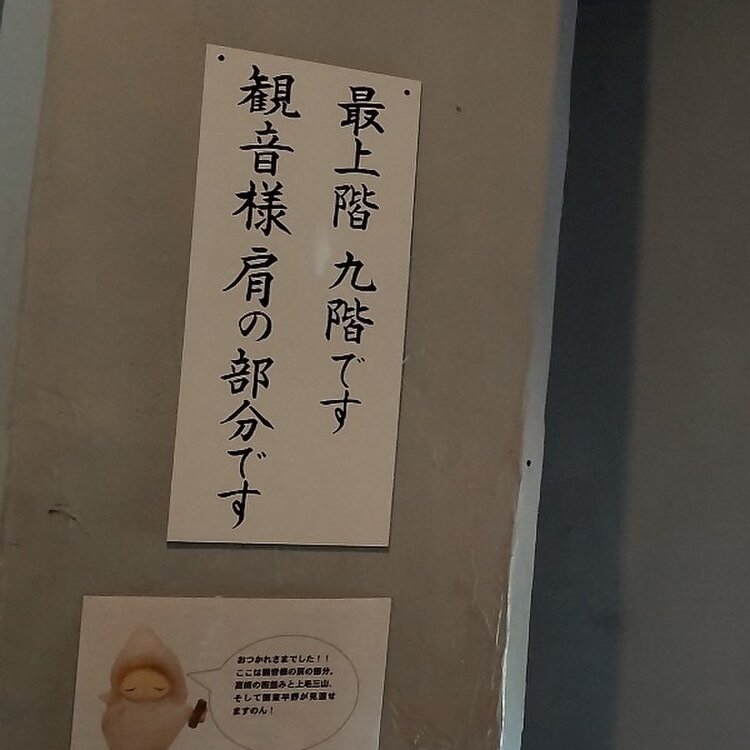 最上階 九階です
観音様 肩の部分です
おつかれさまでした！！
ここは観音様の肩の部分。
高崎の街並みと上毛三山、
そして関東平野が見渡せ
ますのん！